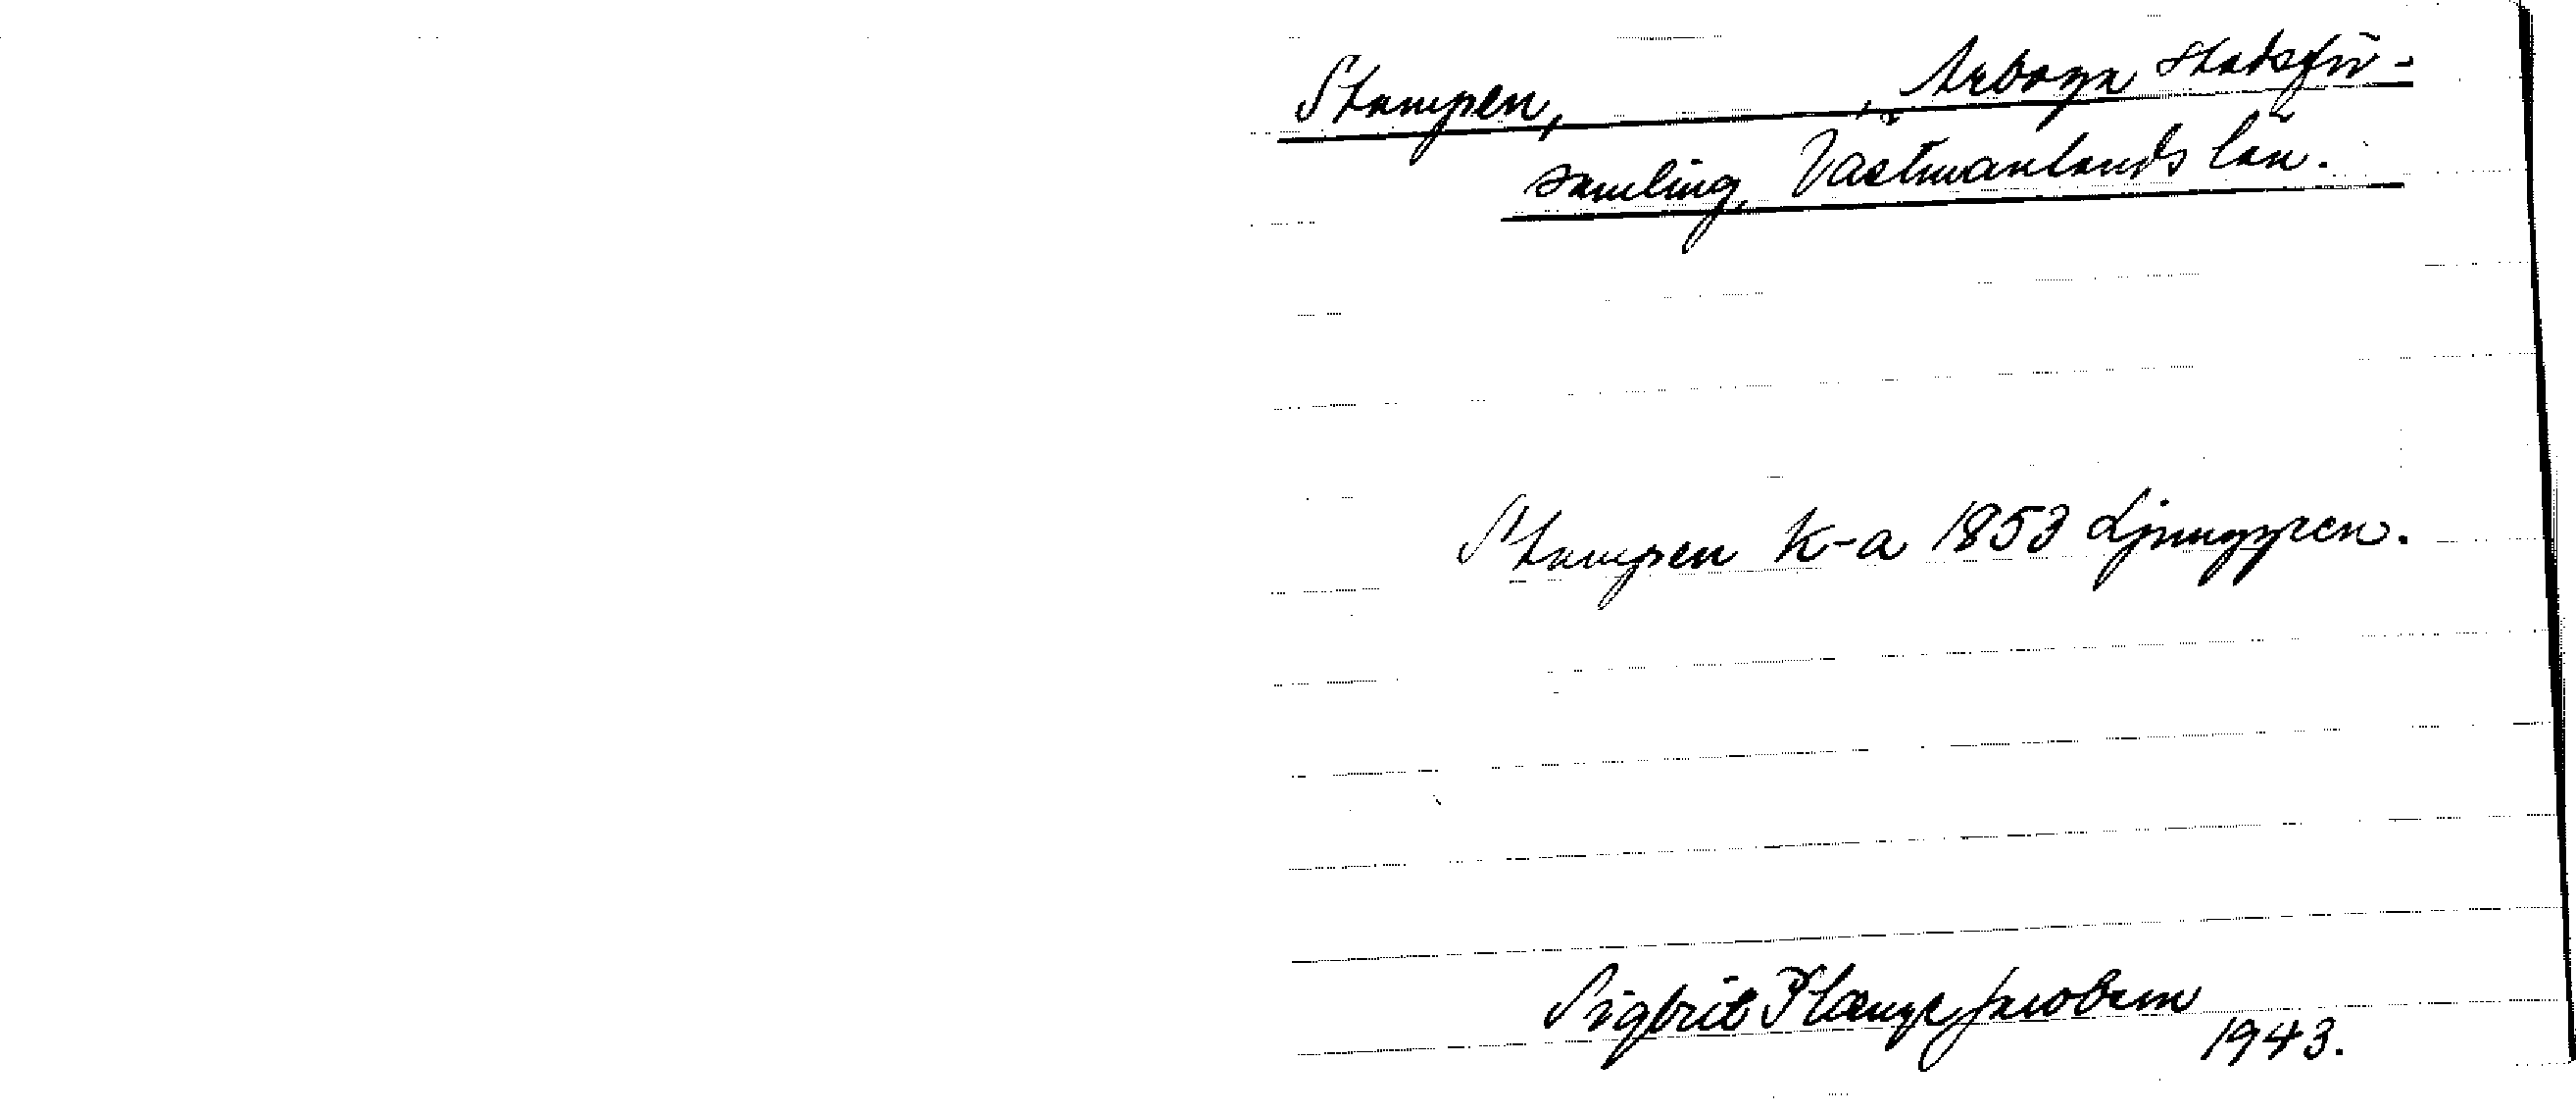 Stampen, , Arboga stadsför-
samling, Västmanlands län.
Stampen K-a 1853 Ljunggren.
Sigbrit Plænge Jacobson
1943.